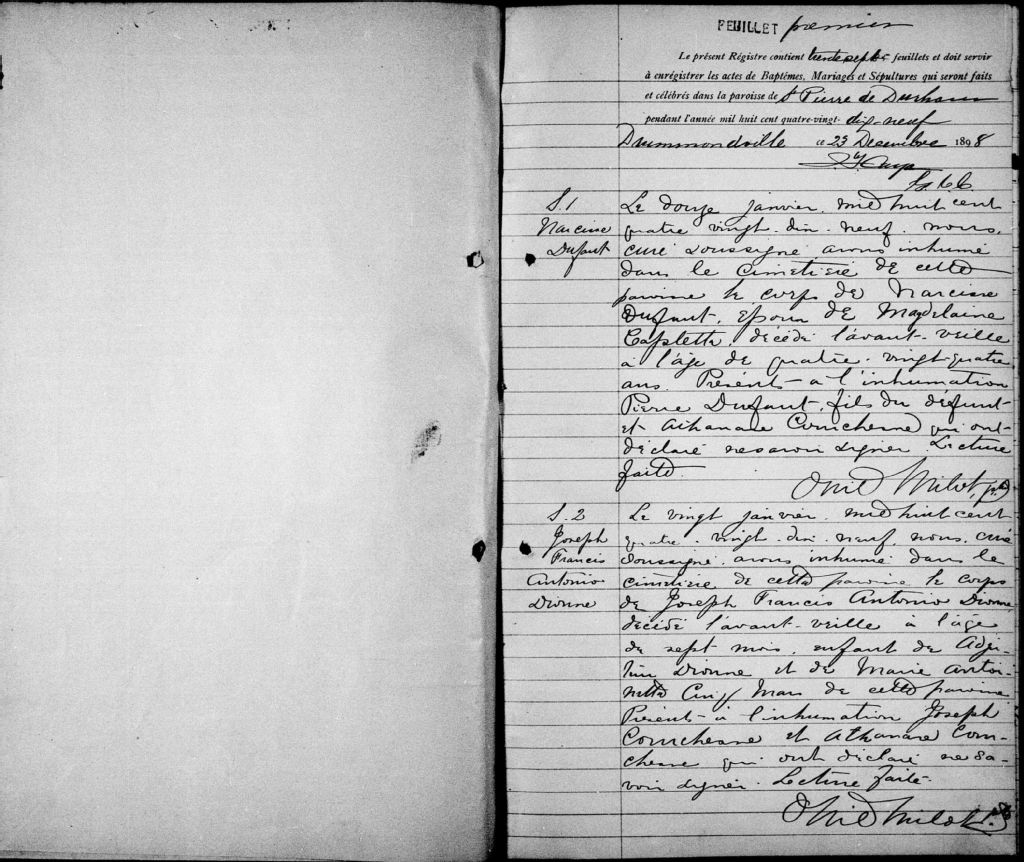 FEUILLET premier
Le présent Régistre contient trente sept feuillets et doit servir
à enrégistrer les actes de Baptêmes, Mariages et Sépultures qui seront faits
et célébrés dans la paroisse de St Pierre de Durham
pendant l'année mil huit cent quatre-vingt- dix-neuf
Drummondville ce 23 Decembre 1898
S. 1
Narcisse
Dufaut
Le douze janvier, mil huit cent
quatre vingt-dix-neuf, nous,
curé soussigné avons inhumé
dans le cimetière de cette
paroisse le corps de Narcisse
Dufaut, époux de Magdelaine
décédé l'avant-veille
à l'âge de quatre-vingt-quatre
ans. Présents à l'inhumation
Pierre Dufaut, fils du défunt
et Athanase Courchesne qui ont
déclaré ne savoir signer. Lecture
faite.
Ovid Milot, ptre
S. 2
Joseph
Francis
Antonio
Dionne
Le vingt janvier, mil huit cent
quatre-vingt-dix-neuf, nous, curé
soussigné, avons inhumé dans le
cimetière de cette paroisse le corps
de Joseph Francis Antonio Dionne
décédé l'avant-veille à l'âge
de sept mois, enfant de
Dionne et de Marie Antoi-
nette Cinq Mars de cette paroisse
Présents à l'inhumation Joseph
Courchesne et Athanase Cour-
chesne qui ont déclaré ne sa-
voir signer. Lecture faite.
Ovid Milot, ptre